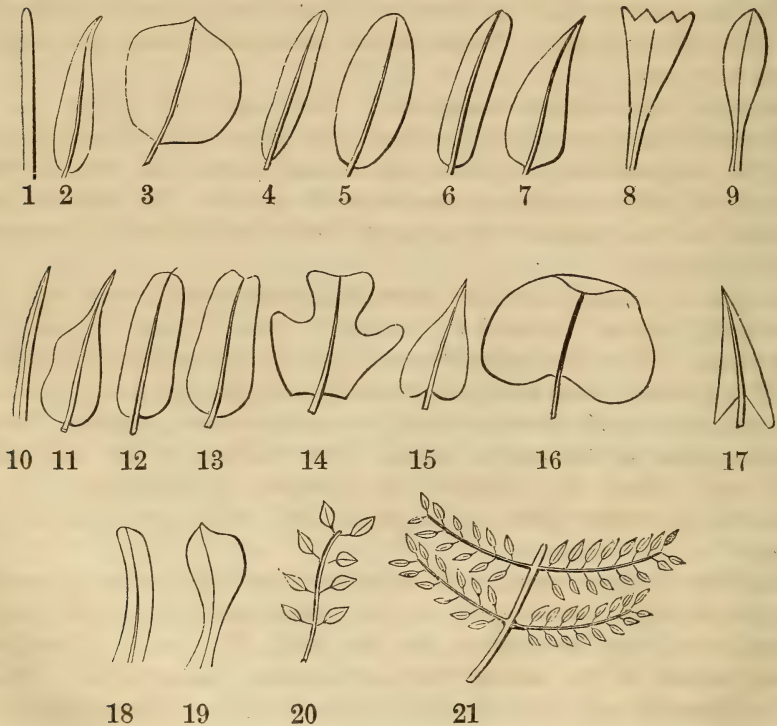 1 2 3 4 5 6 7 8 9
10 11 12 13 14 15 16 17
18 19 20 21